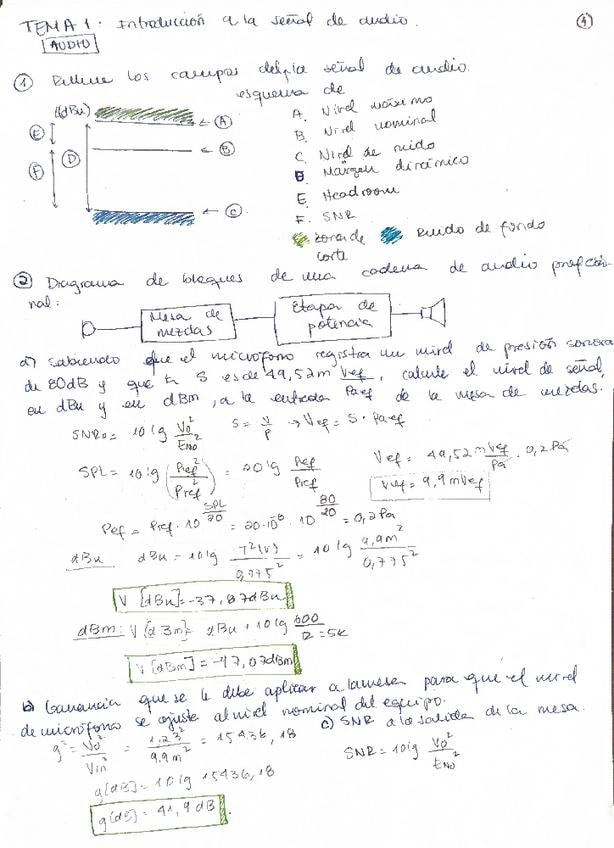 TEMA 1. Introducción a la señal de audio. 1
AUDIO
1 Rellene los campos del/la señal de audio.
esquema de
(dBu)
A. Nivel máximo
B. Nivel nominal
C. Nivel de ruido
D. Márgen dinámico
E. Headroom
F. SNR
zona de corte
Ruido de fondo
E
F
D
A
B
C
2 Diagrama de bloques de una cadena de audio profesio-
nal:
Mesa de mezclas
Etapa de potencia
a) Sabiendo que el micrófono registra un nivel de presión sonora
de 80dB y que la S es de 49,52m Vef/Paef, calcule el nivel de señal,
en dBu y en dBm, a la entrada de la mesa de mezclas.
SNRo = 10 lg Vo²/ENO² S = V/P → Vef = S · Paef
SPL = 10 lg (Pef²/Pref²) = 20 lg Pef/Pref Vef = 49,52 mVef/Pa · 0,2Pa
Vef = 9,9 mVef
Pef = Pref · 10^SPL/20 = 20·10⁻⁶ · 10^80/20 = 0,2 Pa
dBu dBu = 10 lg T²(V)/0,775² = 10 lg 9,9m²/0,775²
V [dBu] = -37,87 dBu
dBm: V [dBm] = dBu + 10 lg 600/R=5K
V [dBm] = -47,07 dBm
b) Ganancia que se le debe aplicar a la mesa para que el nivel
de micrófono se ajuste al nivel nominal del equipo.
g² = Vo²/Vin² = 1,23²/9.9m² = 15436,18
g[dB] = 10 lg 15436,18
g[dB] = 41,9 dB.
c) SNR a la salida de la mesa.
SNR = 10 lg Vo²/ENO²